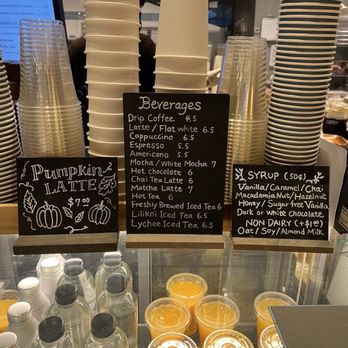 Pumpkin
LATTE
$7.00
Beverages
Drip Coffee 4.5
Latte / Flat white 6.5
Cappuccino 6.5
Espresso 5.5
Americano 5.5
Mocha / White Mocha 7
Hot chocolate 6
Chai Tea Latte 6
Matcha Latte 7
Hot Tea 6
Freshly Brewed Iced Tea 6
Lilikoi Iced Tea 6.5
Lychee Iced Tea 6.5
SYRUP (50¢)
Vanilla/Caramel/Chai
Macadamia Nut/Hazelnut
Honey/Sugar free Vanilla
Dark or white chocolate
NON DAIRY (+$1.00)
Oat/Soy/Almond Milk